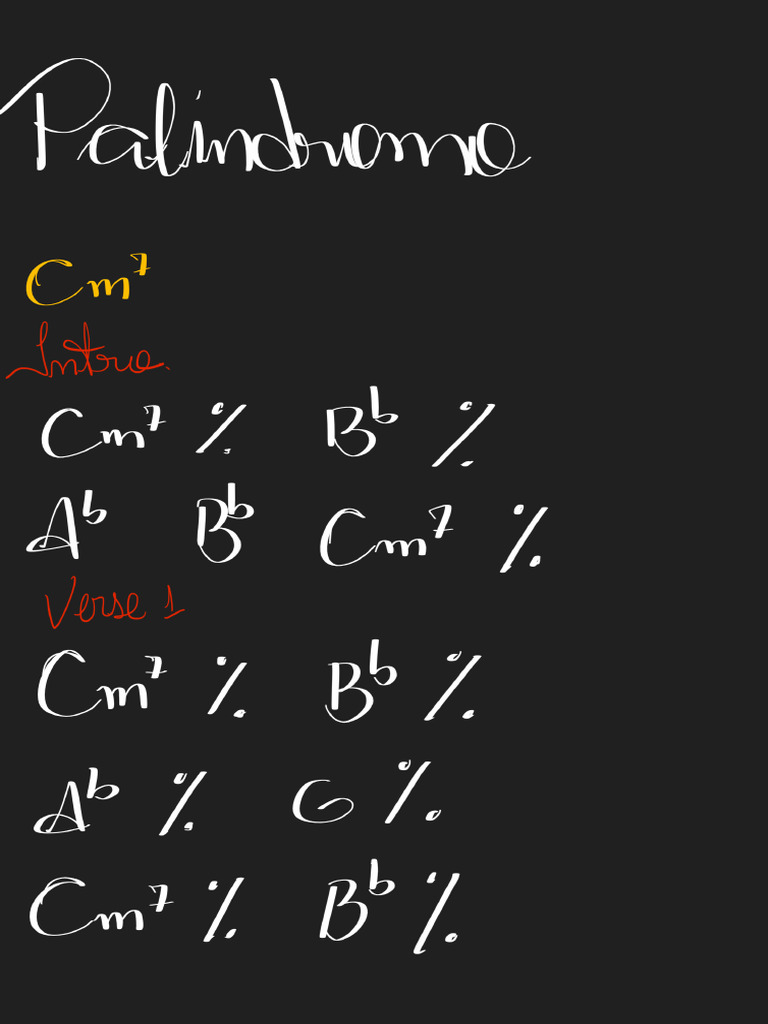 Palindromo
Cm⁷
Intro.
Cm⁷ % Bᵇ %
Aᵇ Bᵇ Cm⁷ %
Verse 1
Cm⁷ % Bᵇ %
Aᵇ % G %
Cm⁷ % Bᵇ %